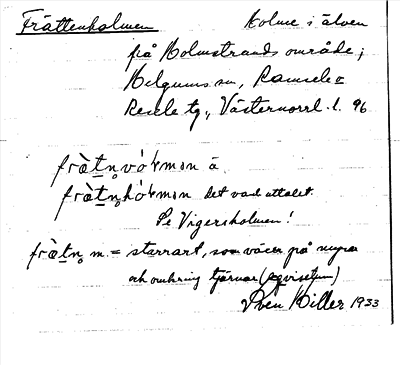 Frättenholmen Holme i älven
på Holmstrands område;
Helgums sn, Ramsele o
Resele tg., Västernorrl. l. 96
frät̲n̥vå'ɫmən ä
frät̲n̥hå'ɫmən det vad uttalet.
Se Vigersholmen!
frät̲n̥ m. = starrart, som växer på myra
och omkring tjärnar (eqvisetum)
Sven Hiller 1933